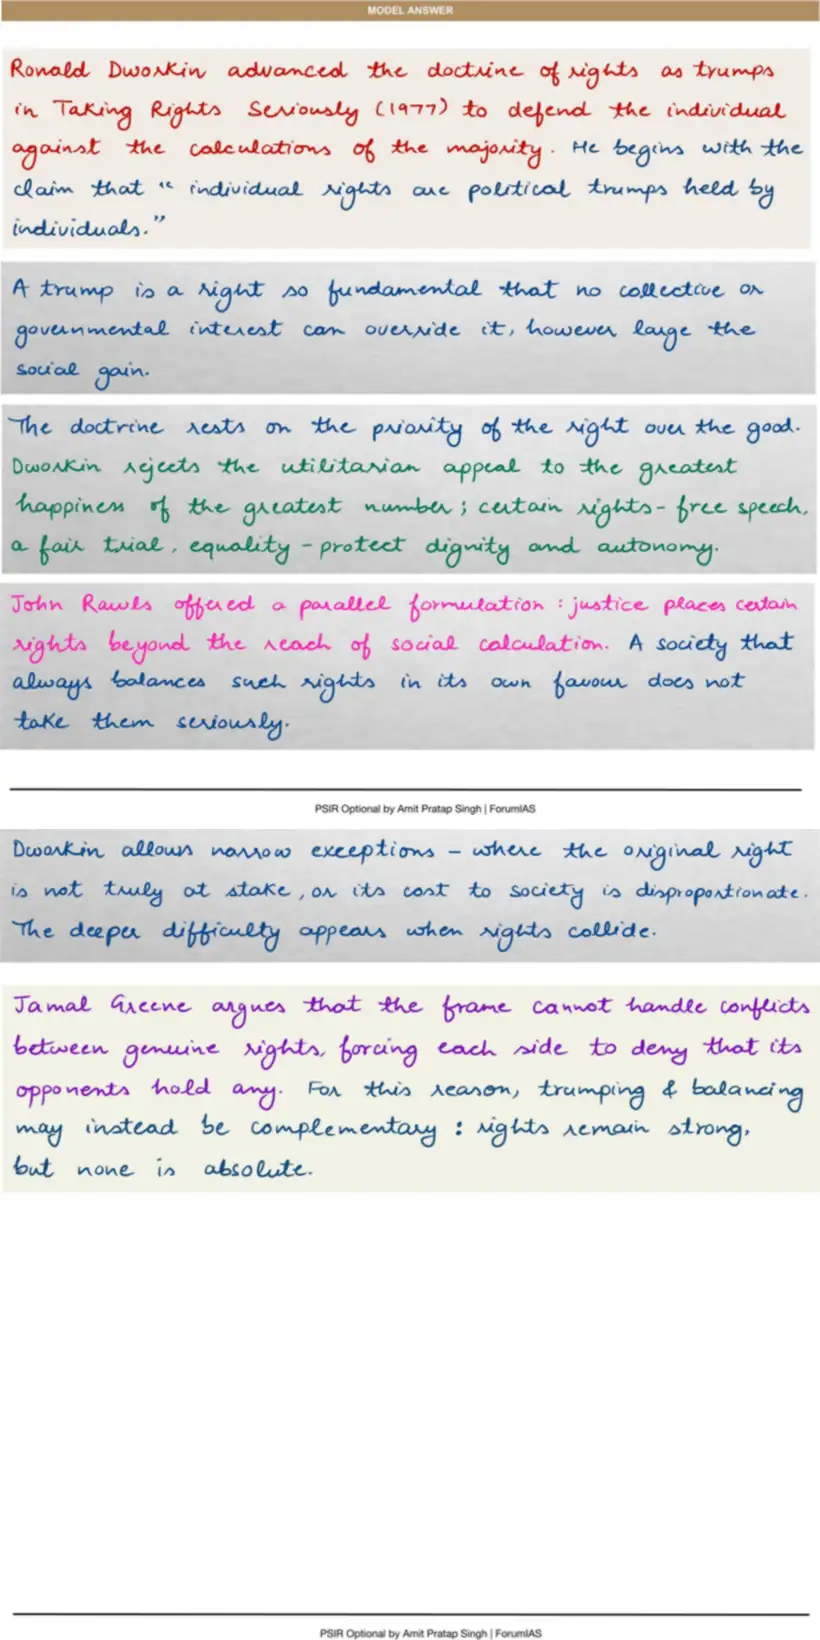 MODEL ANSWER
Ronald Dworkin advanced the doctrine of rights as trumps
in Taking Rights Seriously (1977) to defend the individual
against the calculations of the majority. He begins with the
claim that "individual rights are political trumps held by
individuals."
A trump is a right so fundamental that no collective or
governmental interest can override it, however large the
social gain.
The doctrine rests on the priority of the right over the good.
Dworkin rejects the utilitarian appeal to the greatest
happiness of the greatest number; certain rights - free speech,
a fair trial, equality - protect dignity and autonomy.
John Rawls offered a parallel formulation : justice places certain
rights beyond the reach of social calculation. A society that
always balances such rights in its own favour does not
take them seriously.
PSIR Optional by Amit Pratap Singh | ForumIAS
Dworkin allows narrow exceptions - where the original right
is not truly at stake, or its cost to society is disproportionate.
The deeper difficulty appears when rights collide.
Jamal Greene argues that the frame cannot handle conflicts
between genuine rights, forcing each side to deny that its
opponents hold any. For this reason, trumping & balancing
may instead be complementary : rights remain strong,
but none is absolute.
PSIR Optional by Amit Pratap Singh | ForumIAS